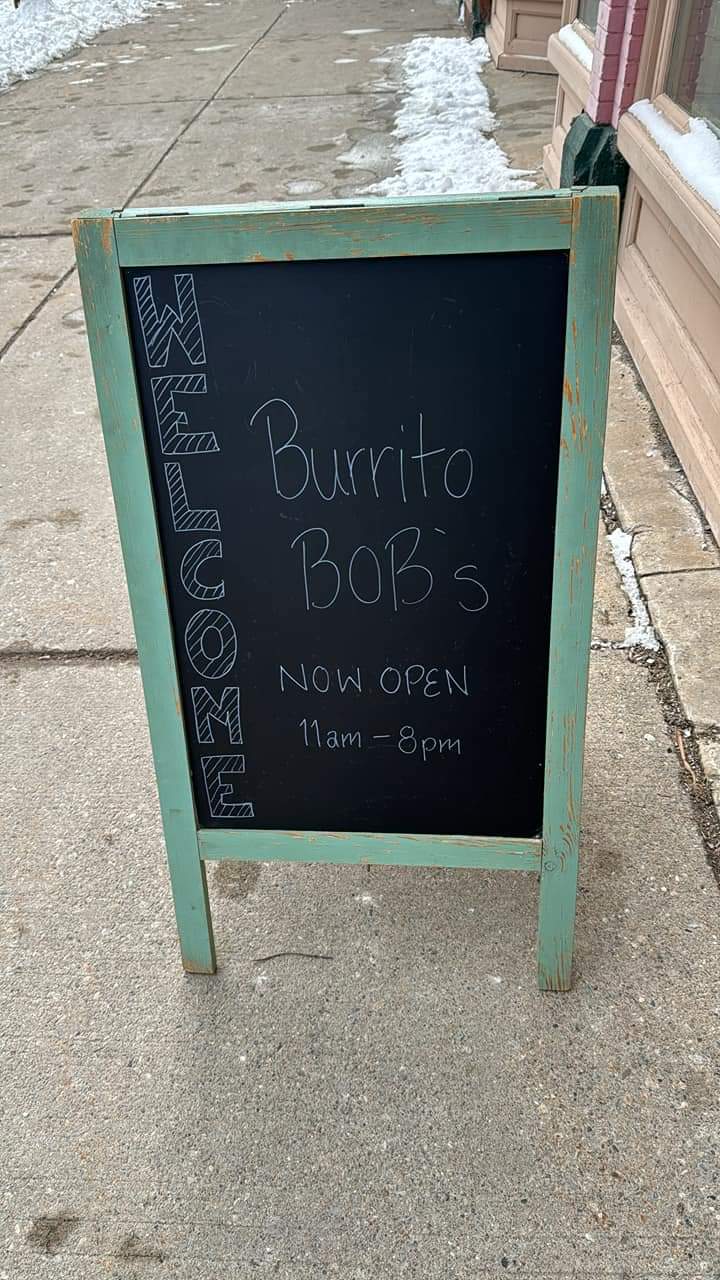 WELCOME
Burrito
BOB's
NOW OPEN
11am - 8pm